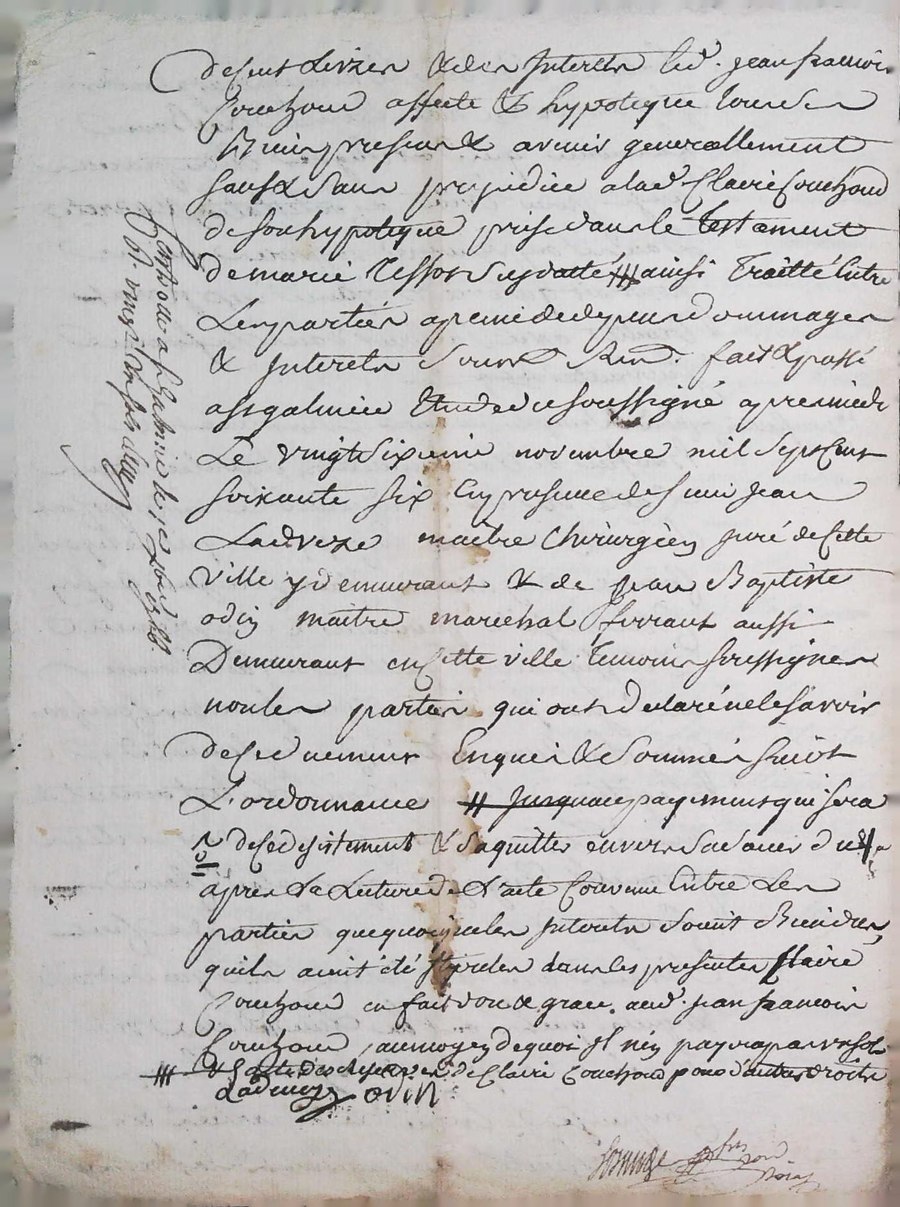 de cent Livres & des Interets led. jean francois
Couhoud affecte & hypoteque tous ses
Biens presens & avenir generallement
sauf & sans prejudice alad. Claire Couhoud
de son hypoteque prise dans le testament
de marie Tessot susdatté ainsi Traitté Entre
Les parties a peine de depens dommages
& Interets Sous Rend. fait & passé
a st galmier Etude du soussigné apres midi
Le vingt Sixieme novembre mil Sept Cent
soixante six En presence de Sieur jean
Ladeveze maitre Chirurgien juré de Cette
ville y demeurant & de jean Baptiste
odin maitre marechal ferrant aussi
Demeurant en Cette ville Temoins soussignes
non les parties qui ont declaré ne le savoir
de ce duement Enquis & Sommés suivt
L'ordonnance jusquau payement qui sera
de ce desistement & Saquitter envers
apres La Lecture de L'acte Convenu Entre Les
parties que quoique les Interets soient
quils aient été stipules dans les presentes Claire
Couhoud en fait don & grace aud. jean francois
Couhoud, au moyen de quoi Il n'en payera pas
& Sauf de Claire Couhoud pour d'autres droits
Ladeveze odin
Controlle a st Galmier le